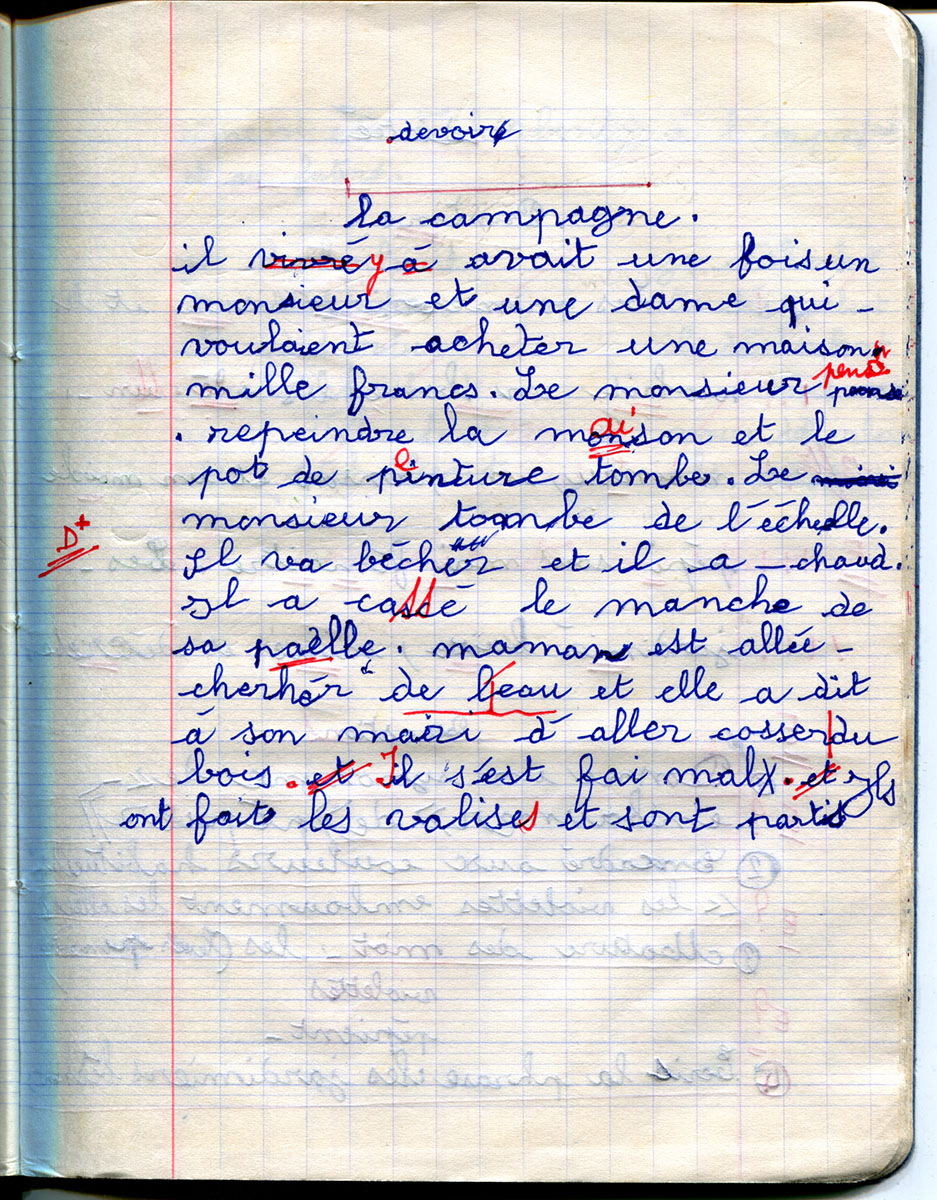 devoir
la campagne.
il vivré y à avait une fois un
monsieur et une dame qui -
voulaient acheter une maison
mille francs. Le monsieur pense
repeindre la monson et le
ai
pot de pinture tombe. Le
e
monsieur toombe de l'échelle.
D+
Il va bêcher et il a - chaud.
Il a cassé le manche de
sa paèlle. maman est allée -
cherhér de leau et elle a dit
à son mairi d'aller casser du
bois. et Il s'est fai mal. et Ils
ont fait les valises et sont partis